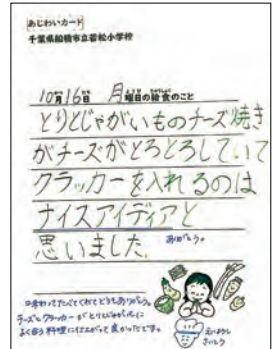 あじわいカード
千葉県船橋市立若松小学校
10月16日 月曜日の給食のこと
とりとじゃがいものチーズ焼き
がチーズがとろとろしていて
クラッカーを入れるのは
ナイスアイディアと
思いました。
ありがとう。
味わってたべてくれてどうもありがとう。
チーズとクラッカーがとりとじゃがいもに
よく合う料理に仕上がって良かったです。